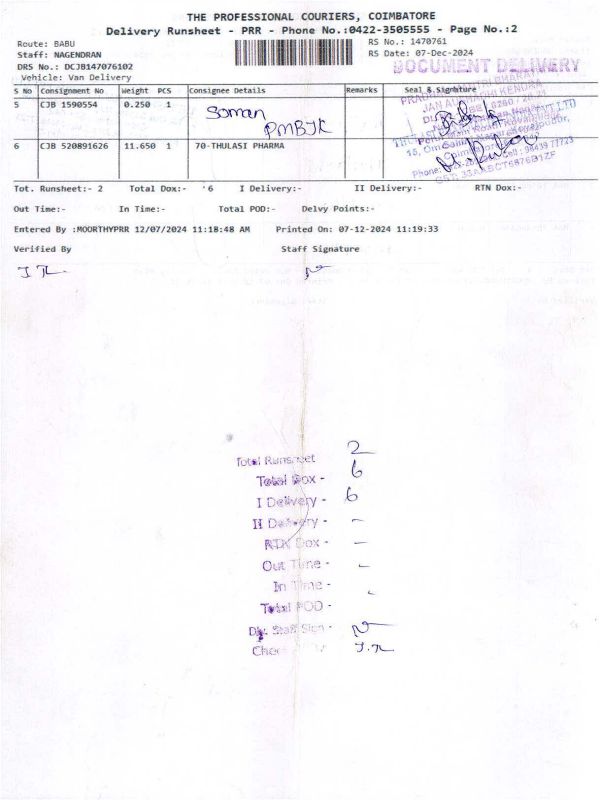 THE PROFESSIONAL COURIERS, COIMBATORE
Delivery Runsheet - PRR - Phone No.:0422-3505555 - Page No.:2
Route: BABU
RS No.: 1470761
Staff: NAGENDRAN
RS Date: 07-Dec-2024
DRS No.: DCJB147076102
DOCUMENT DELIVERY
Vehicle: Van Delivery
S No Consignment No Weight PCS Consignee Details Remarks Seal & Signature
5 CJB 1590554 0.250 1 Soman
PMBJK
6 CJB 520891626 11.650 1 70-THULASI PHARMA
Tot. Runsheet:- 2 Total Dox:- 6 I Delivery:- II Delivery:- RTN Dox:-
Out Time:- In Time:- Total POD:- Delvy Points:-
Entered By :MOORTHYPRR 12/07/2024 11:18:48 AM Printed On: 07-12-2024 11:19:33
Verified By Staff Signature
Total Runsheet 2
Total Dox - 6
I Delivery - 6
II Delivery - -
Dox - -
Out Time - -
In Time -
Total POD -
Staff Sign -